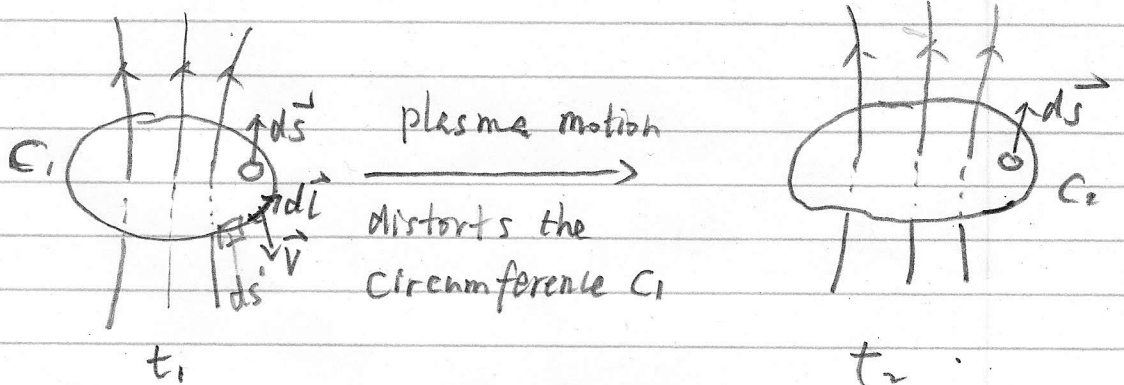 C₁
ds⃗
dl⃗
V⃗
ds'
t₁
plasma motion
distorts the
circumference C₁
ds⃗
C₂
t₂